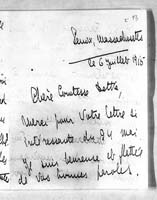 Lenox, Massachusetts
le 6 juillet 1915
Chère Comtesse
Merci pour votre lettre si
intéressante du 24 mai
Je suis heureuse et flattée
de vos bonnes paroles.